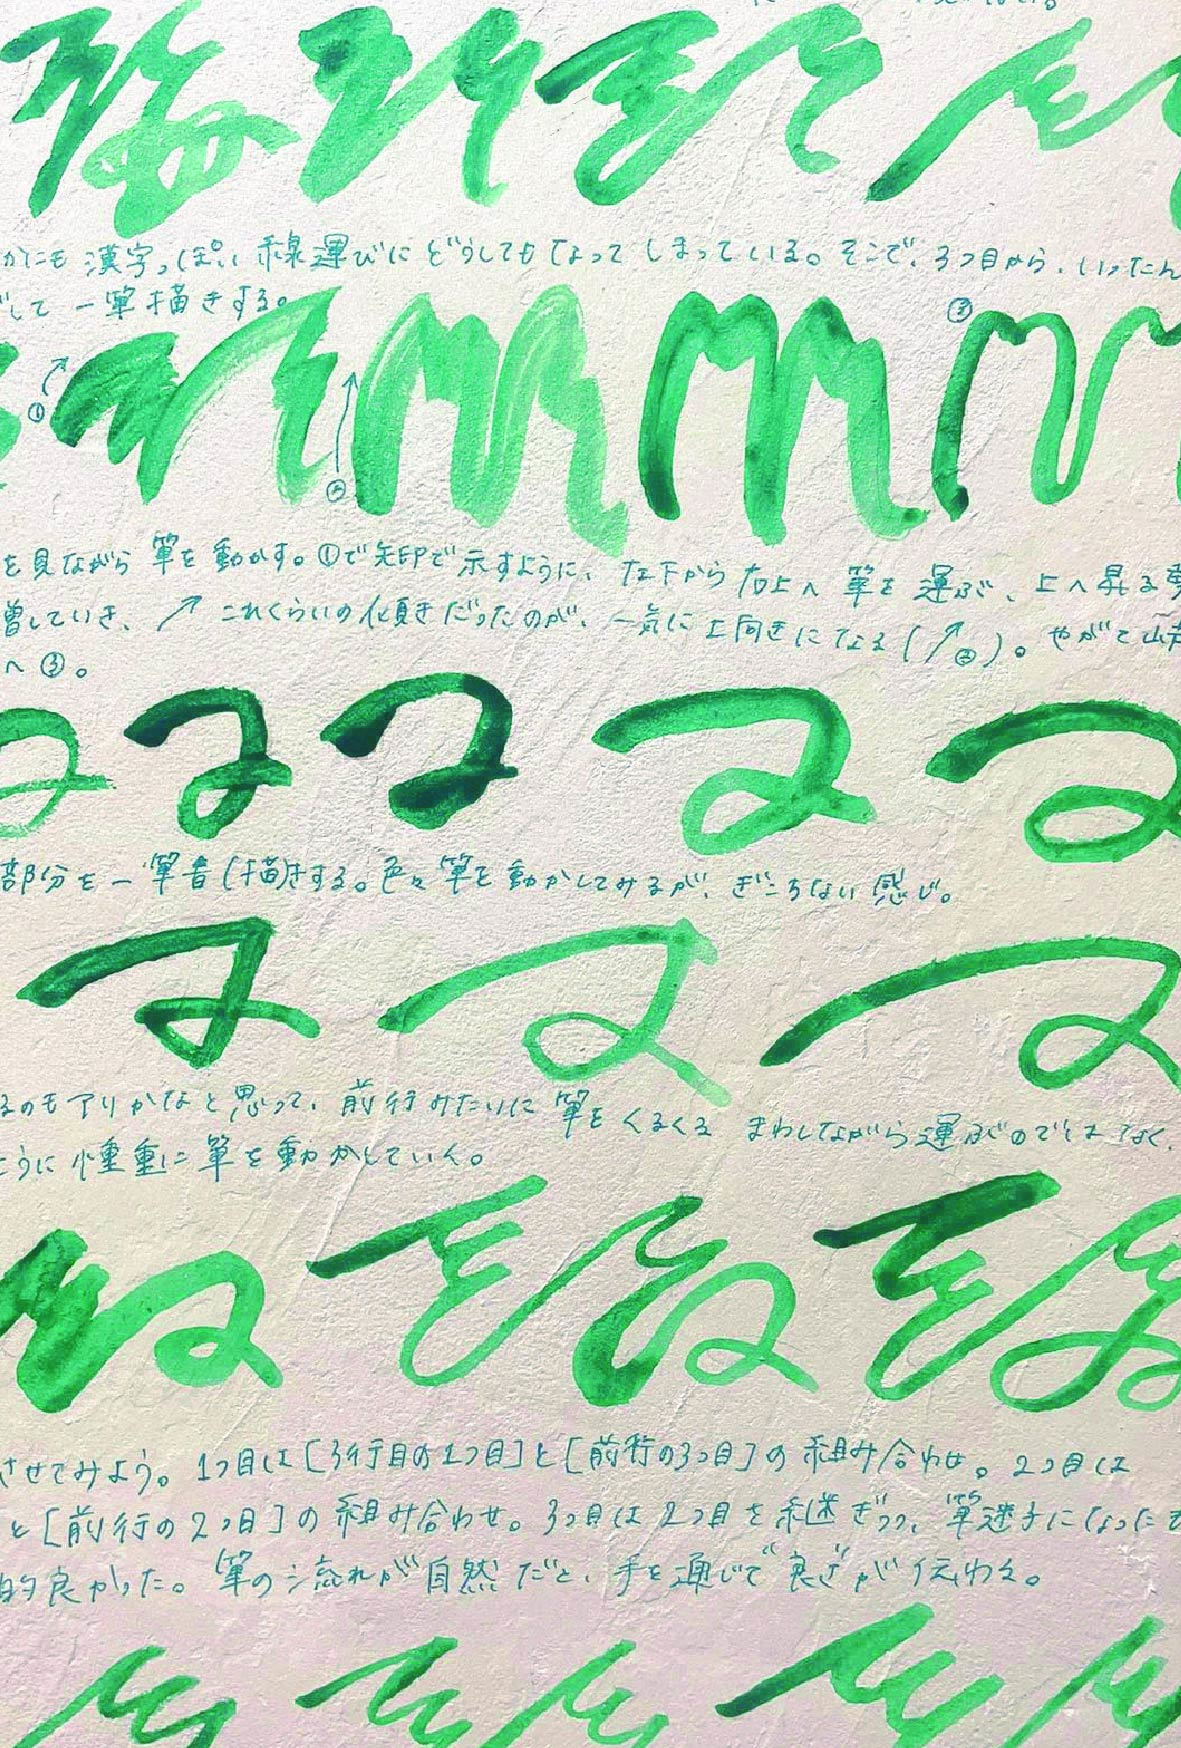 かにも漢字っぽい線運びにどうしてもなってしまっている。そこで、3つ目から、いったん
して一筆描きする。
① ② ③
を見ながら筆を動かす。①で矢印で示すように、左下から右上へ筆を運ぶ、上へ昇る
増していき、↗これくらいの傾きだったのが、一気に上向きになる(↗②)。やがて
へ③。
部分を一筆書(描)きする。色々筆を動かしてみるが、ぎこちない感じ。
るのもアリかなと思って、前行みたいに筆をくるくるまわしながら運ぶのではなく、
ように慎重に筆を動かしていく。
させてみよう。1つ目は[3行目の1つ目]と[前行の3つ目]の組み合わせ。2つ目は
と[前行の2つ目]の組み合わせ。3つ目は2つ目を継ぎつつ、筆迷子になった
的良かった。筆の流れが自然だと、手を通じて良さが伝わる。